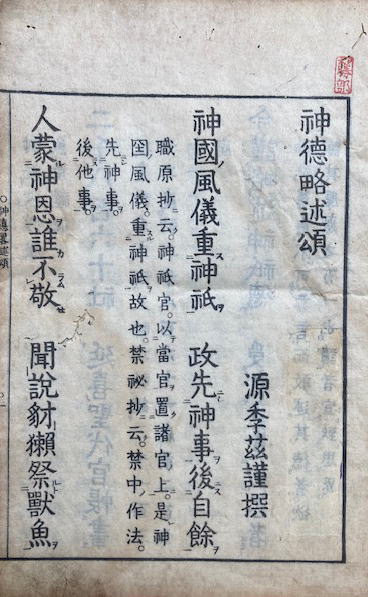 神德略述頌
源季茲謹撰
神國風儀重神祇　政先神事後自餘
職原抄云。神祇官。以當官置諸官上。是神
国風儀。重神祇故也。禁祕抄云。禁中作法。
先神事。
後他事。
人蒙神恩誰不敬　聞說豺獺祭獸魚
○神德略述頌